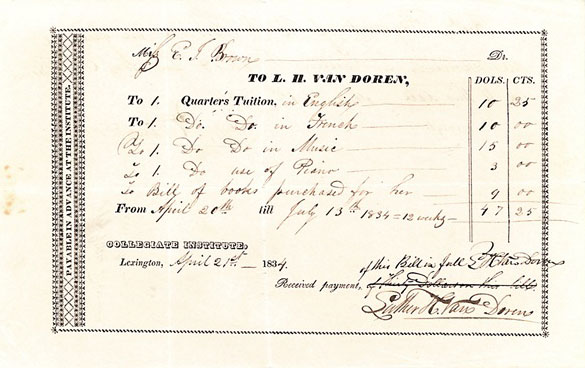 PAYABLE IN ADVANCE AT THE INSTITUTE.
Miss E. J. Brown Dr.
TO L. H. VAN DOREN, DOLS. CTS.
To 1. Quarter's Tuition, in English 10 25
To 1. Do. Do. in French 10 00
To 1. Do Do in Music 15 00
To 1. Do use of Piano 3 00
To Bill of books purchased for her 9 00
From April 20th till July 13th 1834 = 12 weeks 47 25
COLLEGIATE INSTITUTE,
Lexington, April 21st 1834.
of this Bill in full L H Van Doren
Received payment, of thirty Dollars on this bill
Luther H. Van Doren